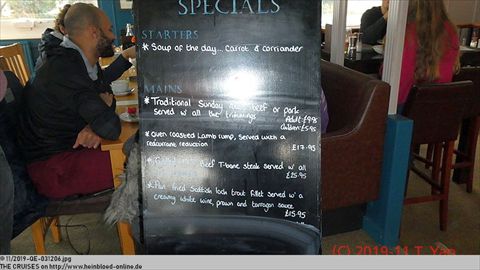 SPECIALS
STARTERS
* Soup of the day... Carrot & Corriander
MAINS
* Traditional Sunday beef or pork
served w/ all the trimmings Adult £9.95
Children £5.95
* Oven roasted Lamb rump, served with a
redcurrant reduction £17.95
* Beef T-bone steak served w/ all
£25.95
* Pan fried Scottish loch trout fillet served w/ a
creamy white wine, prawn and tarragon sauce
£15.95
(C) 2019-11 T. Yao
11/2019-QE-031206.jpg
THE CRUISES on http://www.heinbloed-online.de